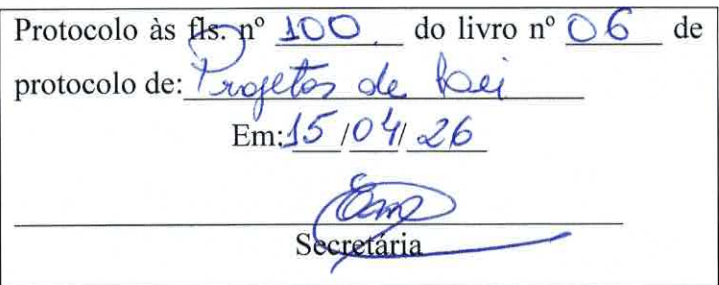 Protocolo às fls. nº 100 do livro nº 06 de
protocolo de: Projetos de Lei
Em: 15/04/26
Secretária